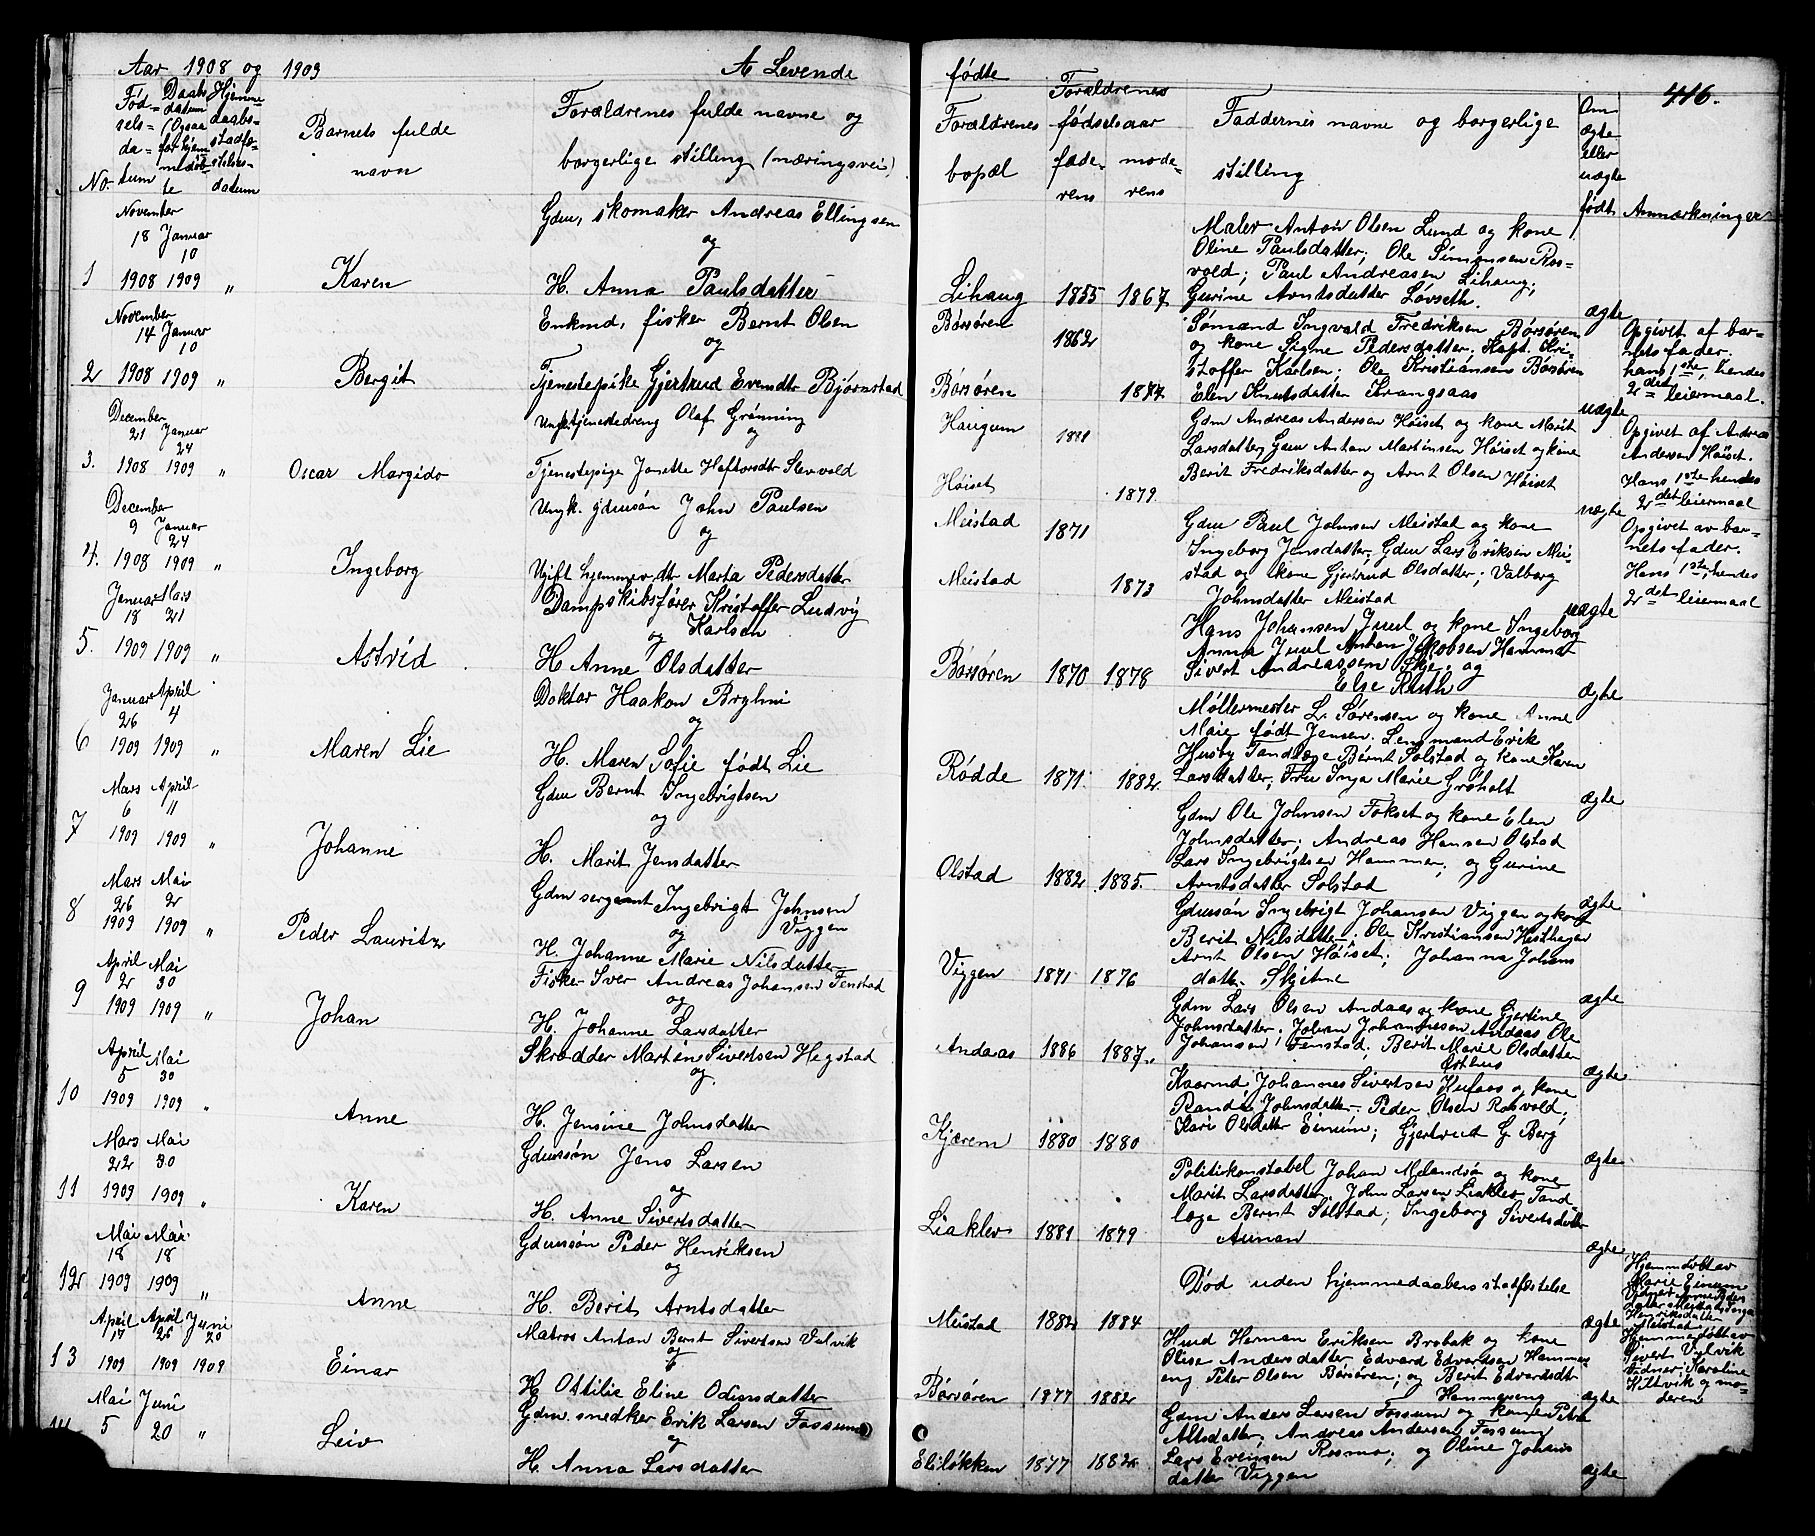 Aar 1908 og 1909
A Levende
No.
Fødselsdatum
Daabsdatum (Ogsaa for hjemmedøbte
Hjemmedaabsstadfæstelsesdatum
Barnets fulde navn
Forældrenes fulde navne og
borgerlige stilling (næringsvei)
November 18 Januar 10
1 1908 1909 "
Karen
Gdm, skomaker Andreas Ellingsen
og
H. Anna Paulsdatter
November 14 Januar 10
2 1908 1909 "
Bergit
Enkmd, fisker Bernt Olsen
og
Tjenestepike Gjertrud Evendtr Bjørnstad
December 21 Januar 24
3. 1908 1909 "
Oscar Margido
Ungk tjenestedreng Olaf Grønning
og
Tjenestepige Jonette Haftorsdtr Slevold
December 9 Januar 24
4. 1908 1909 "
Ingeborg
Ungk. gdmsøn John Paulsen
og
Ugift hjemmev. dtr Marta Pedersdatter
Januar 18 Mars 21
5. 1909 1909 "
Astrid
Dampskibsfører Kristoffer Ludvig
Karlsen
og
H. Anne Olsdatter
Januar 26 April 4
6 1909 1909 "
Maren Lie
Doktor Haakon Bryhni
og
H. Maren Sofie født Lie
Mars 6 April 11
7 1909 1909 "
Johanne
Gdm Bernt Ingebrigtsen
og
H. Marit Jensdatter
Mars 26 Mai 2
8 1909 1909 "
Peder Lauritz
Gdm sergeant Ingebrigt Johnsen
Viggen
og
H. Johanne Marie Nilsdatter
April 2 Mai 30
9 1909 1909 "
Johan
Fisker Iver Andreas Johansen Fenstad
og
H. Johanne Larsdatter
April 5 Mai 30
10 1909 1909 "
Anne
Skrædder Martin Sivertsen Hegstad
og
H. Jensine Johnsdatter
Mars 22 Mai 30
11 1909 1909 "
Karen
Gdmsøn Jens Larsen
og
H. Anne Sivertsdatter
Mai 18 Mai 18
12 1909 1909 "
Anne
Gdmsøn Peder Henriksen
og
H. Berit Arntsdatter
April 17 April 26 Juni 20
13 1909 1909 1909
Einar
Matros Anton Bernt Sivertsen Valvik
og
H. Ottilie Eline Odinsdatter
Mai 5 Juni 20 "
Leiv
Gdm. snedker Erik Larsen Fossum
og
H. Anna Larsdatter
fødte
416.
Forældrenes bopæl
Forældrenes fødselsaar
faderens moderens
Faddernes navne og borgerlige
stilling
Om ægte eller uægte født
Anmærkninger
Lihaug 1855 1867
Maler Anton Olsen Lund og kone
Oline Paulsdatter, Ole Simonsen Ros-
vold; Paul Andreasen Lihaug;
Gurine Arntsdatter Løvseth.
ægte
Børsøren 1862
Børsøren 1887.
Sømand Ingvald Fredriksen Børsøren
og kone Signe Pedersdatter. Kapt. Kri-
stoffer Karlsen. Ole Kristiansen Børsøren
Elen Knutsdatter Krangsaas
uægte
Opgivet af bar-
nets fader.
hans 1ste, hendes
2det leiermaal.
Haugum
Høiset 1879
Gdm Andreas Andersen Høiset og kone Marit
Larsdatter Gdm Anton Martinsen Høiset og kone
Berit Fredriksdatter og Arnt Olsen Høiset
uægte
Opgivet af Andreas
Andersen Høiset.
Hans 1ste hendes
2det leiermaal
Meistad 1871
Meistad 1873
Gdm Paul Johnsen Meistad og kone
Ingeborg Jensdatter, Gdm Lars Eriksen Mei-
stad og kone Gjertrud Olsdatter; Valborg
Johnsdatter Meistad
uægte
Opgivet av bar-
nets fader.
Hans 1ste, hendes
2det leiermaal
Børsøren 1870 1878
Hans Johansen Juul og kone Ingeborg
Anna Juul Anton Jakobsen Hammer
Sivert Andreassen Skje. og
Else Ruth
ægte
Rødde 1871. 1882.
Møllermester L. Sørensen og kone Anne
Marie født Jensen. Lensmand Erik
Husby Tandlæge Bernt Solstad og kone Karen
Larsdatter, Fru Inga Marie Grøholt
ægte
Olstad 1882 1885.
Gdm Ole Johnsen Fokset og kone Elen
Johnsdatter. Andreas Hansen Olstad
Lars Ingebrigtsen Hammer; og Gurine
Arntsdatter Solstad
ægte
Viggen 1871 1876
Gdmsøn Ingebrigt Johansen Viggen og kone
Berit Nilsdatter. Ole Kristiansen Hesthagen
Arnt Olsen Høiset; Johanna Johans
datter Skjetne
ægte
Andaas 1886 1887.
Gdm Lars Olsen Andaas og kone Gjertine
Johnsdatter. Johan Johannesen Andaas Ole
Johansen Fenstad; Berit Marie Olsdatter
ægte
Kjærem 1880 1880
Kaarmd Johannes Sivertsen Kufaas og kone
Randi Johnsdatter. Peder Olsen Rosvold;
Kari Olsdatter Einum; Gjertrud G Berg
ægte
Liaklev 1881 1879
Politikonstabel Johan Melandsø og kone
Marit Larsdatter. John Larsen Liaklev Tand
læge Bernt Solstad; Ingeborg Sivertsdatter
Aunan
ægte
Meistad 1882 1884
Død uden hjemmedaabens stadfæstelse
ægte
Hjemmedøbt av
Marie Einum
Børsøren 1877 1882
Husd Herman Eriksen Brobak og kone
Olise Andersdatter, Edvard Edvardsen Hammer
eng Peter Olsen Børsøren; og Berit Edvardsdtr
Hammereng
ægte
Hjemmedøbt av
Sivert Valvik
Vidner: Karoline
Hiltvik og mo-
deren
Elisløkken 1877 1882
Gdm Anders Larsen Fossum og kone Petra
Altsdatter. Andreas Andersen Fossum
Lars Evensen Rosmo; og Oline Johans
datter Viggen
ægte